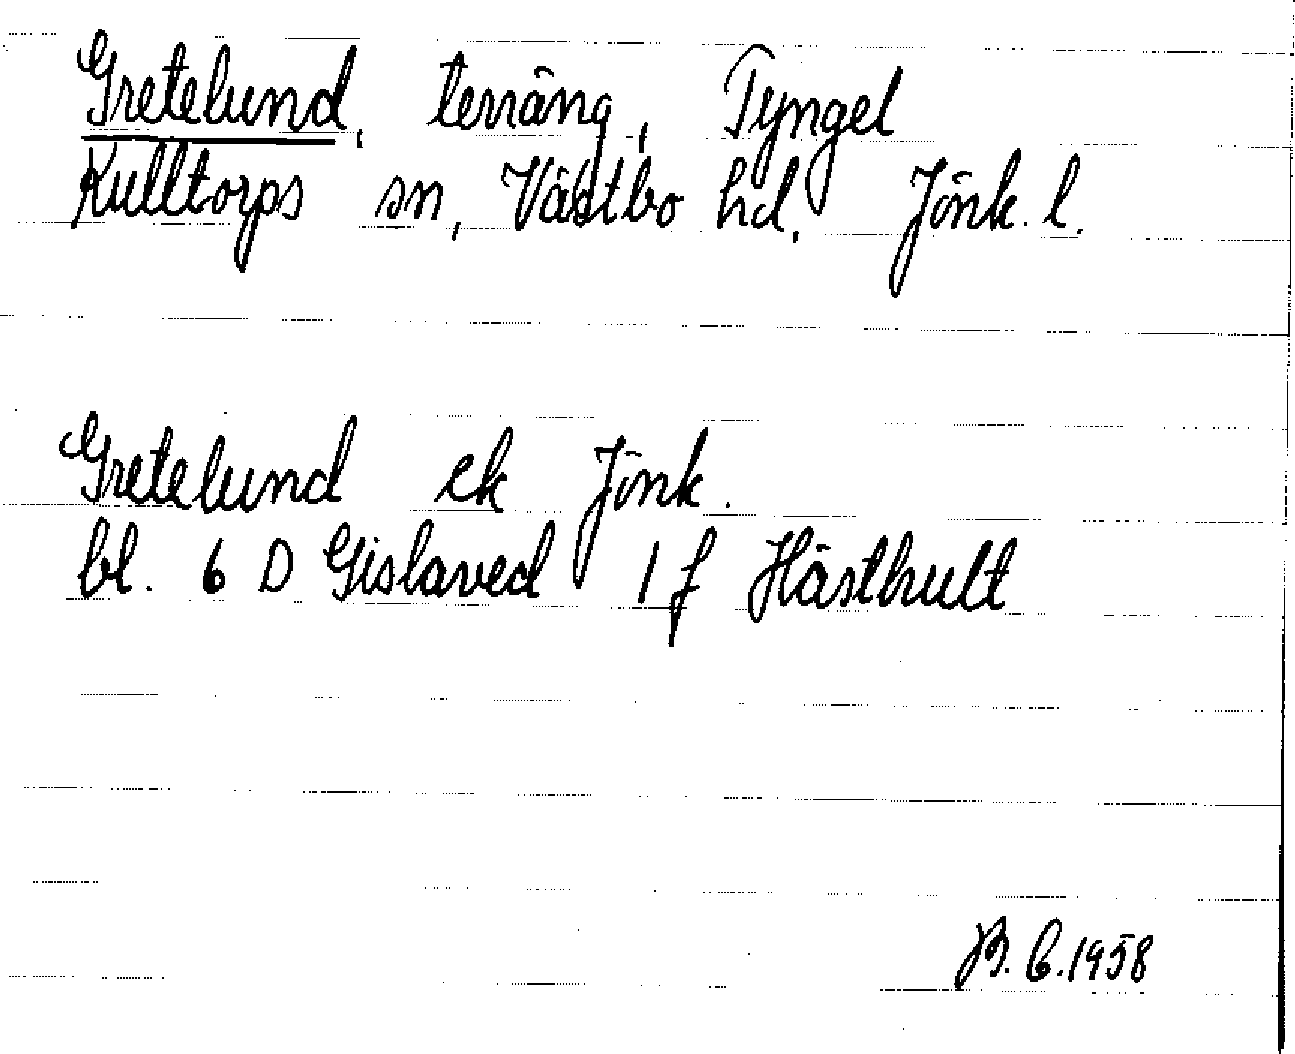 Gretelund, terräng, Tyngel
Kulltorps sn, Västbo hd, Jönk. l.
Gretelund ek Jönk.
bl. 6 D Gislaved 1 f Hästhult
B. E. 1958